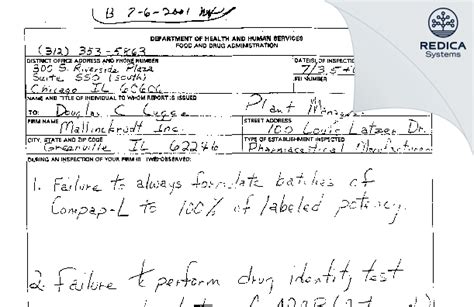 B 7-6-2001
REDICA
Systems
DEPARTMENT OF HEALTH AND HUMAN SERVICES
FOOD AND DRUG ADMINISTRATION
(312) 353-5863
DISTRICT OFFICE ADDRESS AND PHONE NUMBER
DATE(S) OF INSPECTION
300 S. Riverside Plaza
7/3,5
Suite 550 (South)
FEI NUMBER
Chicago IL 60606
NAME AND TITLE OF INDIVIDUAL TO WHOM REPORT IS ISSUED
TO: Douglas C
Plant Manager
FIRM NAME
STREET ADDRESS
Mallinckrodt Inc.
100 Louis Latzer Dr.
CITY, STATE AND ZIP CODE
TYPE OF ESTABLISHMENT INSPECTED
Greenville IL 62246
Pharmaceutical Manufacturer
DURING AN INSPECTION OF YOUR FIRM (WE) OBSERVED:
1. Failure to always formulate batches of
Compap-L to 100% of labeled potency.
2. Failure to perform drug identity test